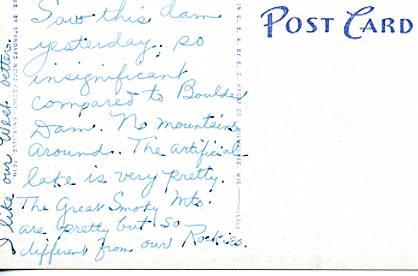 Saw this dam
yesterday, so
insignificant
compared to Boulder
Dam. No mountains
around. The artificial
lake is very pretty.
The Great Smoky Mts.
are pretty but so
different from our Rockies.
I like our West better.
POST CARD